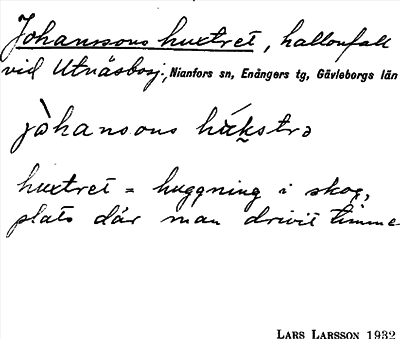 Johanssons huxtret, hallonfall
vid Utnäsberg, Nianfors sn, Enångers tg, Gävleborgs län
jòhansons húkstrə
huxtret = huggning i skog,
plats där man drivit timme
LARS LARSSON 1932